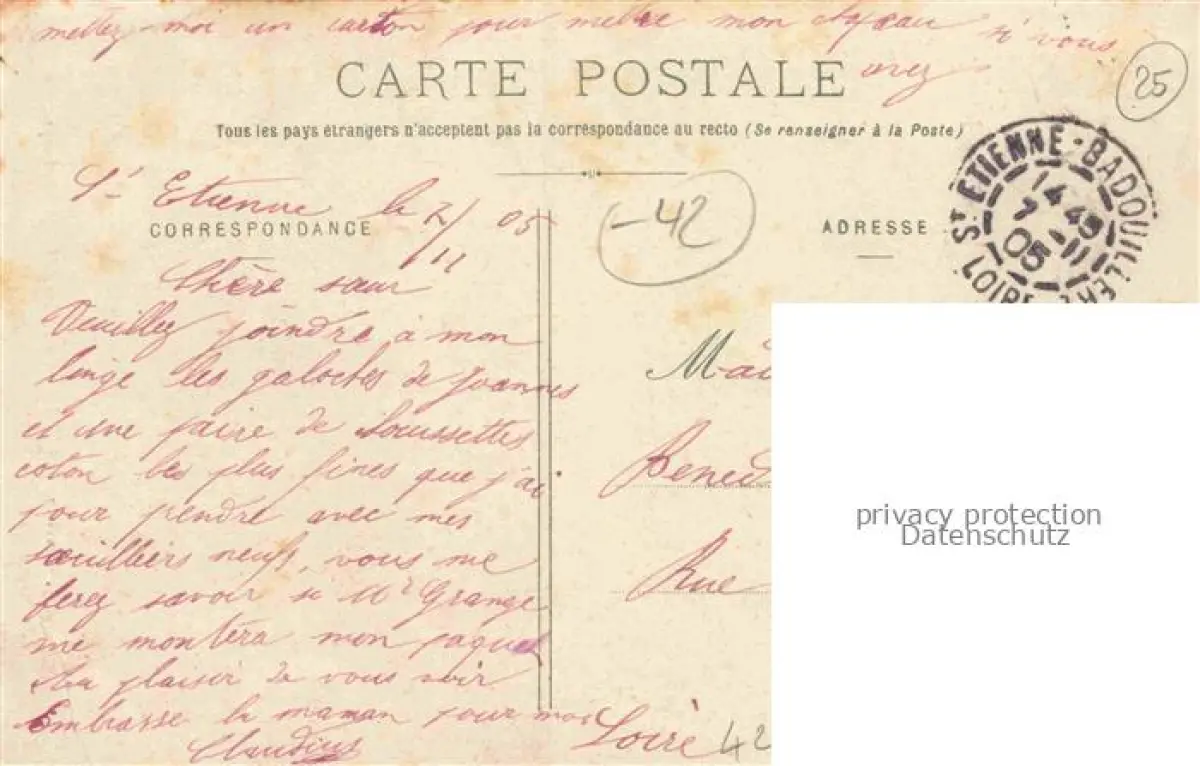 mettez-moi un carton pour mettre mon chapeau si vous
avez
CARTE POSTALE
25
Tous les pays étrangers n'acceptent pas la correspondance au recto (Se renseigner à la Poste)
St Etienne le 7/11 05
-42
CORRESPONDANCE
ADRESSE
ST ETIENNE-BADOUILLÈRE
14 45
7 11
05
LOIRE
Chère sœur
Veuillez joindre à mon
linge les galoches de Joannes
et une paire de
coton les plus fines que j'ai
pour prendre avec mes
souilliers neufs, vous me
ferez savoir si Mr Grange
me montera mon paquet
plaisir de vous voir
Embrasse la maman pour moi
Claudius
Rue
Loire 42
privacy protection
Datenschutz